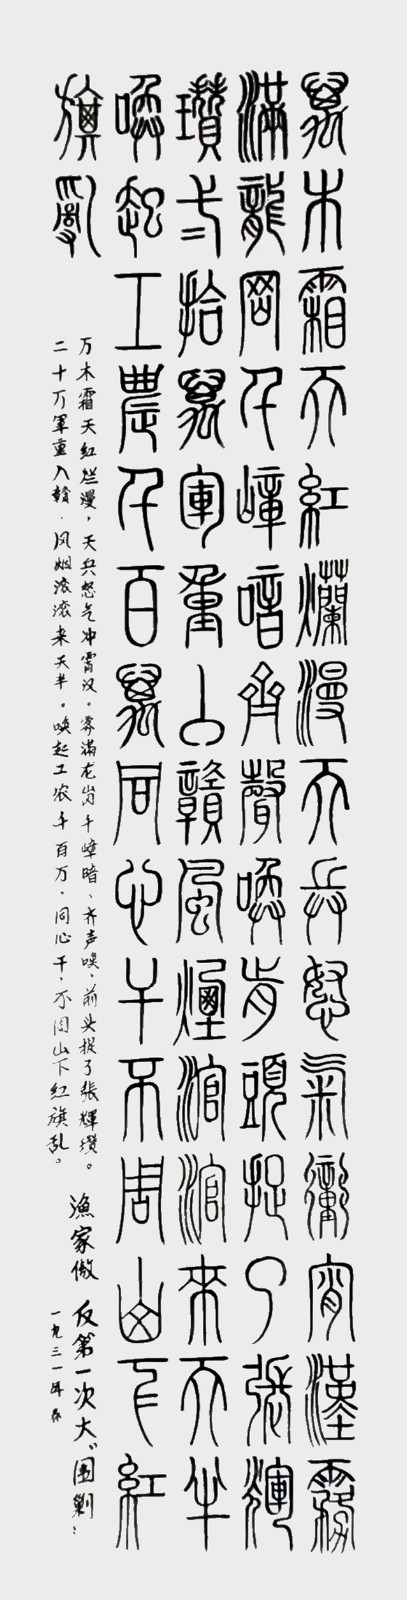 萬木霜天紅爛漫天兵怒氣衝宵漢霧
滿龍岡千嶂暗齊聲喚前頭捉了張輝
瓚弍拾萬軍重入贛風煙滾滾來天半
喚起工農千百萬同心干不周山下紅
旗亂
万木霜天红烂漫，天兵怒气冲霄汉。雾满龙岗千嶂暗、齐声唤、前头捉了张輝瓒。
二十万軍重入赣．风烟滚滚来天半。唤起工农千百万．同心干．不周山下红旗乱。
漁家傲 反第一次大“围剿”
一九三一年春